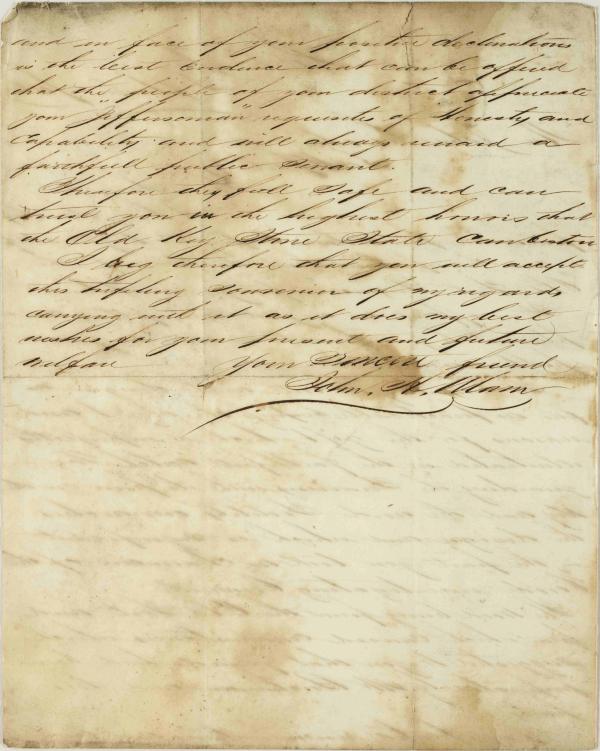 and in face of your positive declinations
is the best Evidence that can be offered
that the people of your district appreciate
your "Jeffersonian" requisites of honesty and
Capability and will always reward a
faithfull public Servant
Therefore they feel Safe and can
trust you in the highest honors that
the Old Key Stone State Can bestow
I beg therefore that you will accept
this trifeling Souvenior of my regards
carrying with it as it does my best
wishes for your present and future
welfare your Sincere friend
John. H.